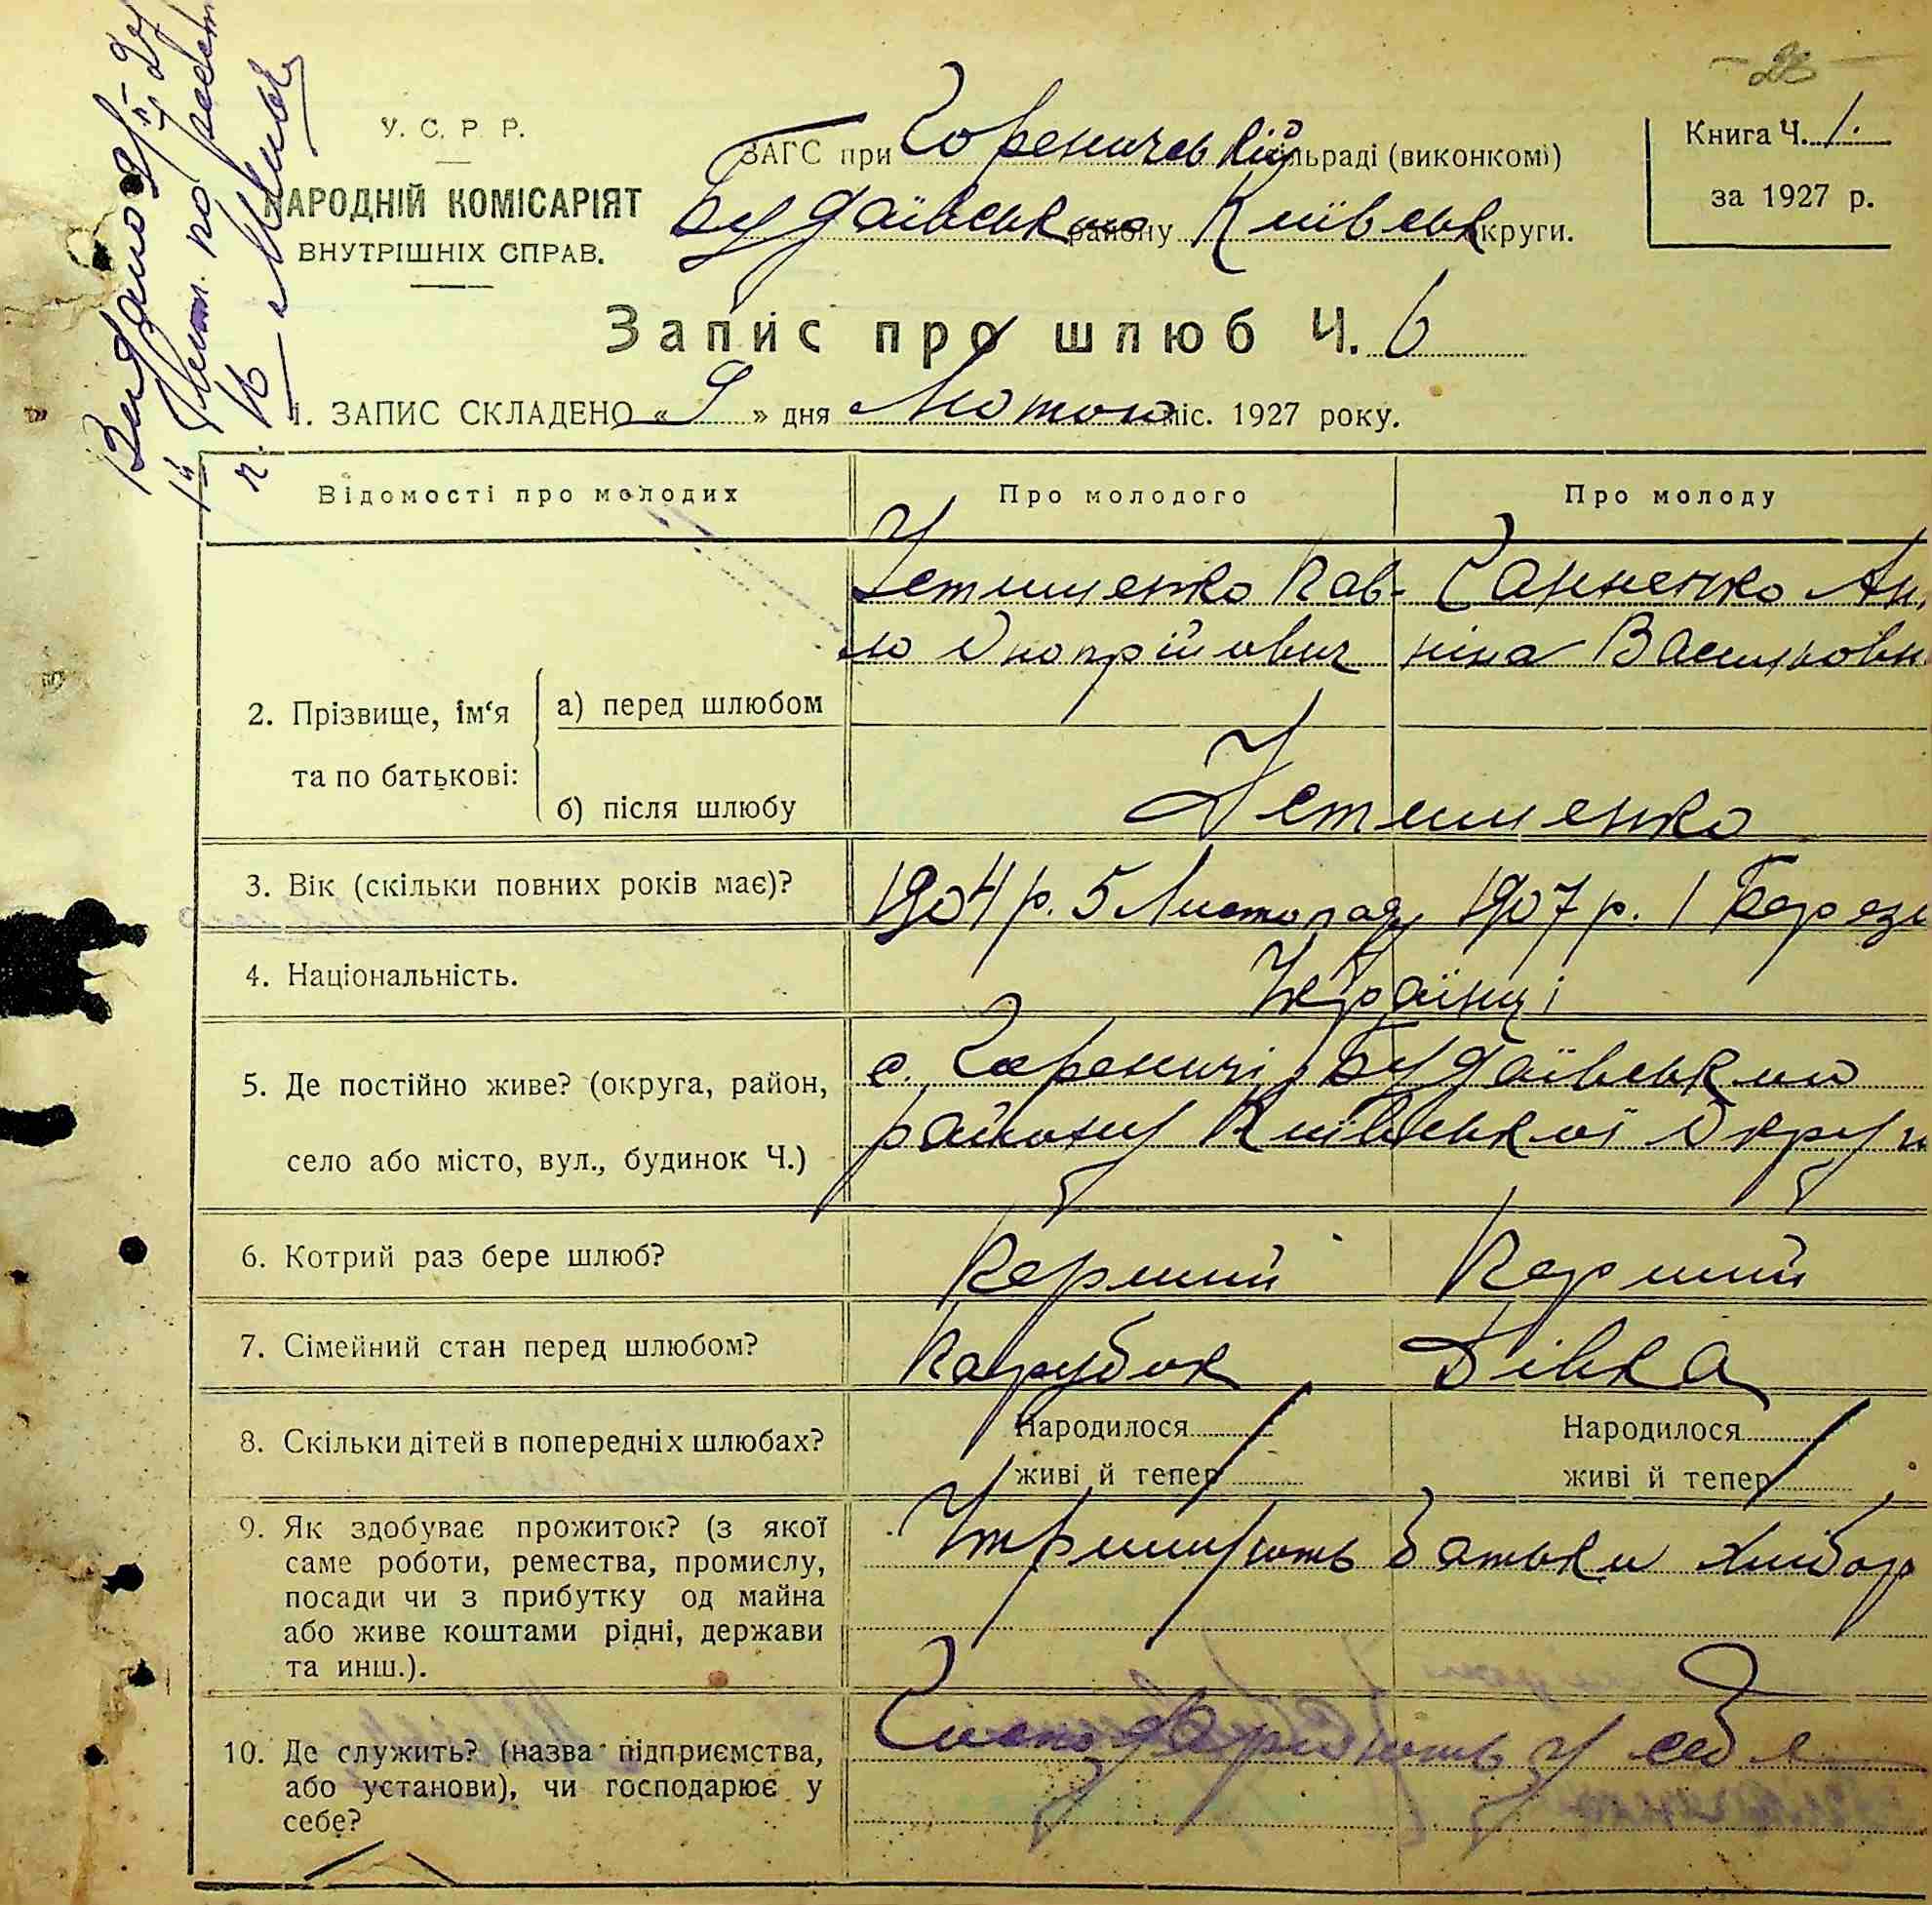 У. С. Р. Р.
НАРОДНІЙ КОМІСАРІЯТ
ВНУТРІШНІХ СПРАВ.
ЗАГС при Гореничській сільраді (виконкомі)
Будаївськ району Київськ округи.
Книга Ч. 1.
за 1927 р.
Видано
Запис про шлюб Ч. 6
1. ЗАПИС СКЛАДЕНО «9» дня Лютого міс. 1927 року.
Відомості про молодих Про молодого Про молоду
2. Прізвище, ім'я та по батькові:
а) перед шлюбом
Устименко Пав- Ганненко Ан
ло Онопрійович ніна Васильовн
б) після шлюбу
Устименко
3. Вік (скільки повних років має)? 1904 р. 5 Листопаду 1907 р. 1 Березн
4. Національність. Українці
5. Де постійно живе? (округа, район, с. Гореничі, Будаївського
село або місто, вул., будинок Ч.) району Київської Округи
6. Котрий раз бере шлюб? Перший Перший
7. Сімейний стан перед шлюбом? Парубок Дівка
8. Скільки дітей в попередніх шлюбах? Народилося Народилося
живі й тепер живі й тепер
9. Як здобуває прожиток? (з якої
саме роботи, ремества, промислу,
посади чи з прибутку од майна
або живе коштами рідні, держави
та инш.).
Утримують батьки хлібор
10. Де служить? (назва підприємства,
або установи), чи господарює у
себе?
Господарюють у себе